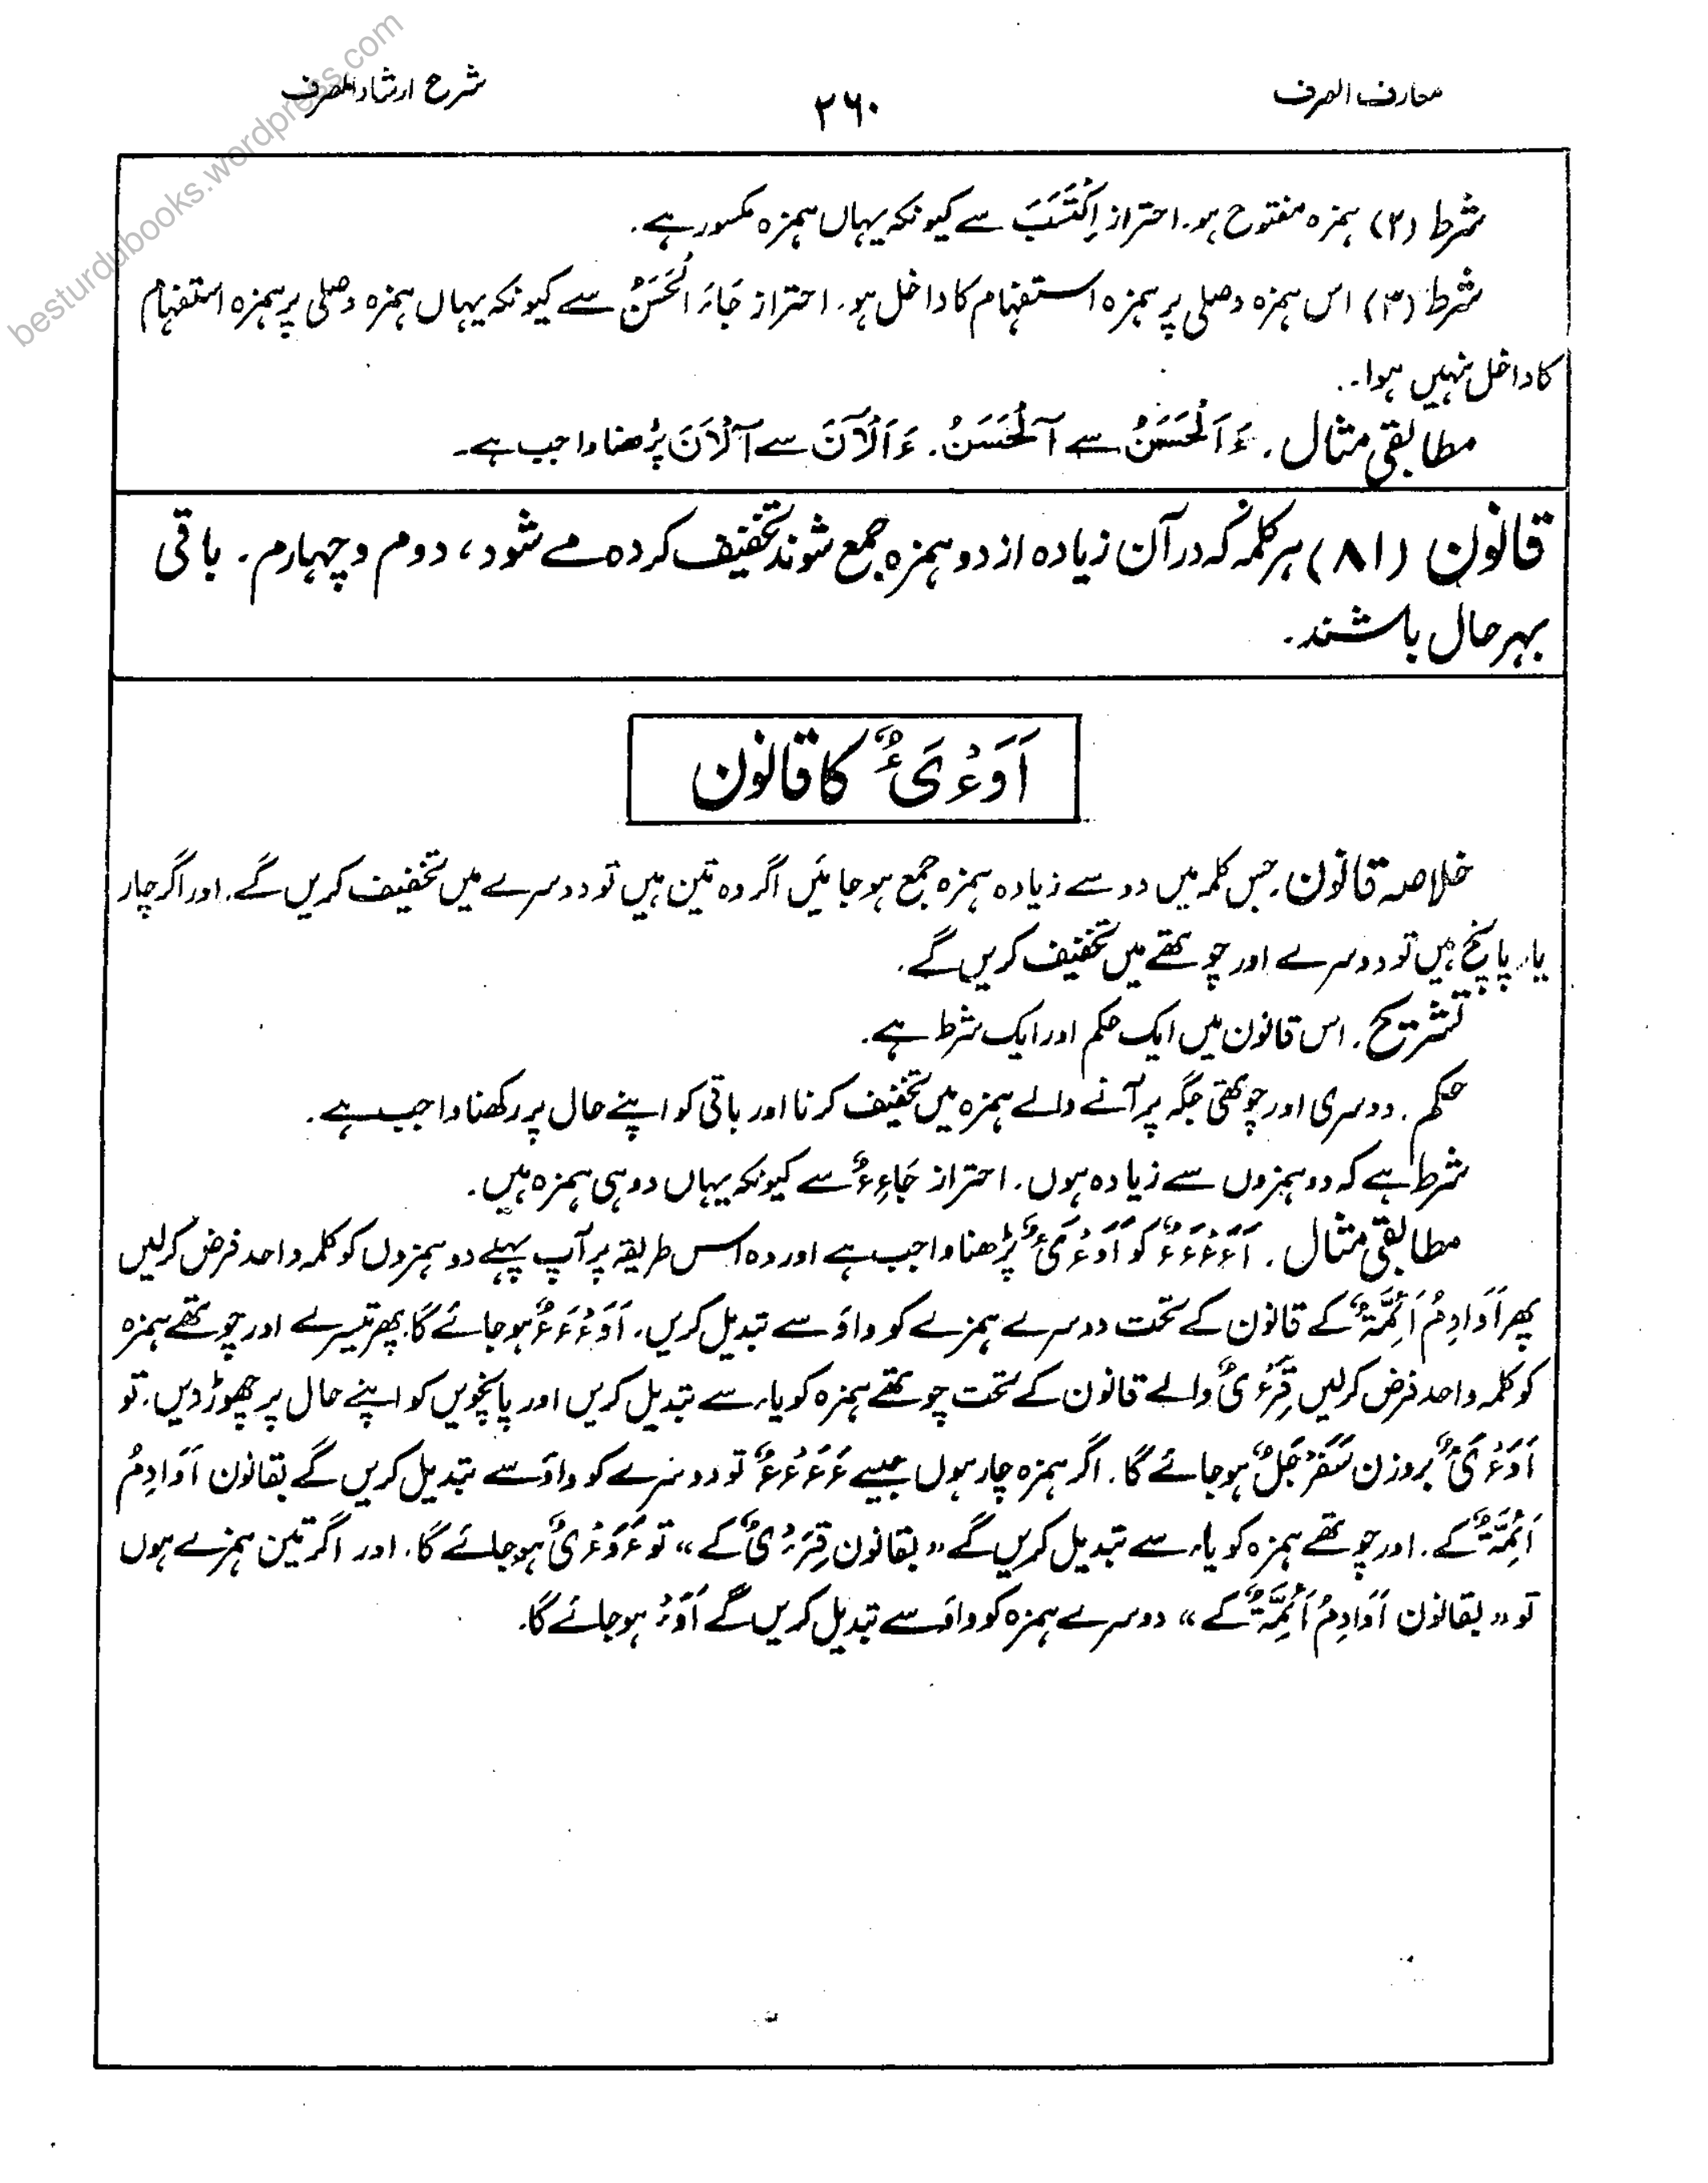 معارف الصرف
۲۶۰
شرح ارشاد الصرف
شرط (۲) ہمزہ مفتوح ہو۔ احتراز اِکْتَسَبَ سے کیونکہ یہاں ہمزہ مکسور ہے۔
شرط (۳) اس ہمزہ وصلی پر ہمزہ استفہام کا داخل ہو۔ احتراز جَاءَ الْحَسَنُ سے کیونکہ یہاں ہمزہ وصلی پر ہمزہ استفہام
کا داخل نہیں ہوا۔
مطابقی مثال۔ ءَ اَلْحَسَنُ سے آلْحَسَنُ۔ ءَ اَلْآنَ سے آلْآنَ پڑھنا واجب ہے۔
قانون (۸۱) ہر کلمہ کہ در آن زیادہ از دو ہمزہ جمع شوند تخفیف کردہ مے شود، دوم و چہارم۔ باقی
بہر حال باشند۔
اَوَءْیَءٌ کا قانون
خلاصہ قانون۔ جس کلمہ میں دو سے زیادہ ہمزہ جمع ہو جائیں اگر وہ تین ہیں تو دوسرے میں تخفیف کریں گے۔ اور اگر چار
یا پانچ ہیں تو دوسرے اور چوتھے میں تخفیف کریں گے۔
تشریح۔ اس قانون میں ایک حکم اور ایک شرط ہے۔
حکم۔ دوسری اور چوتھی جگہ پر آنے والے ہمزہ میں تخفیف کرنا اور باقی کو اپنے حال پر رکھنا واجب ہے۔
شرط ہے کہ دو ہمزوں سے زیادہ ہوں۔ احتراز جَاءِءٌ سے کیونکہ یہاں دو ہی ہمزہ ہیں۔
مطابقی مثال۔ اَءَءْءَءٌ کو اَوَءْیَءٌ پڑھنا واجب ہے اور وہ اس طریقہ پر آپ پہلے دو ہمزوں کو کلمہ واحد فرض کر لیں
پھر اَوَادِمُ اَئِمَّةٌ کے قانون کے تحت دوسرے ہمزے کو واؤ سے تبدیل کریں۔ اَوَءْءَءٌ ہو جائے گا۔ پھر تیسرے اور چوتھے ہمزہ
کو کلمہ واحد فرض کر لیں قِرَءْیٌ والے قانون کے تحت چوتھے ہمزہ کو یاء سے تبدیل کریں اور پانچویں کو اپنے حال پر چھوڑ دیں۔ تو
اَوَءْیَءٌ بروزن سَفَرْجَلٌ ہو جائے گا۔ اگر ہمزہ چار ہوں جیسے ءَءَءْءٌ تو دوسرے کو واؤ سے تبدیل کریں گے بقانون اَوَادِمُ
اَئِمَّةٌ کے۔ اور چوتھے ہمزہ کو یاء سے تبدیل کریں گے ״بقانون قِرَءْیٌ کے״ تو ءَوَءْیٌ ہو جائے گا۔ اور اگر تین ہمزے ہوں
تو ״بقانون اَوَادِمُ اَئِمَّةٌ کے״ دوسرے ہمزہ کو واؤ سے تبدیل کریں گے اَوَءْ ہو جائے گا۔
besturdubooks.wordpress.com